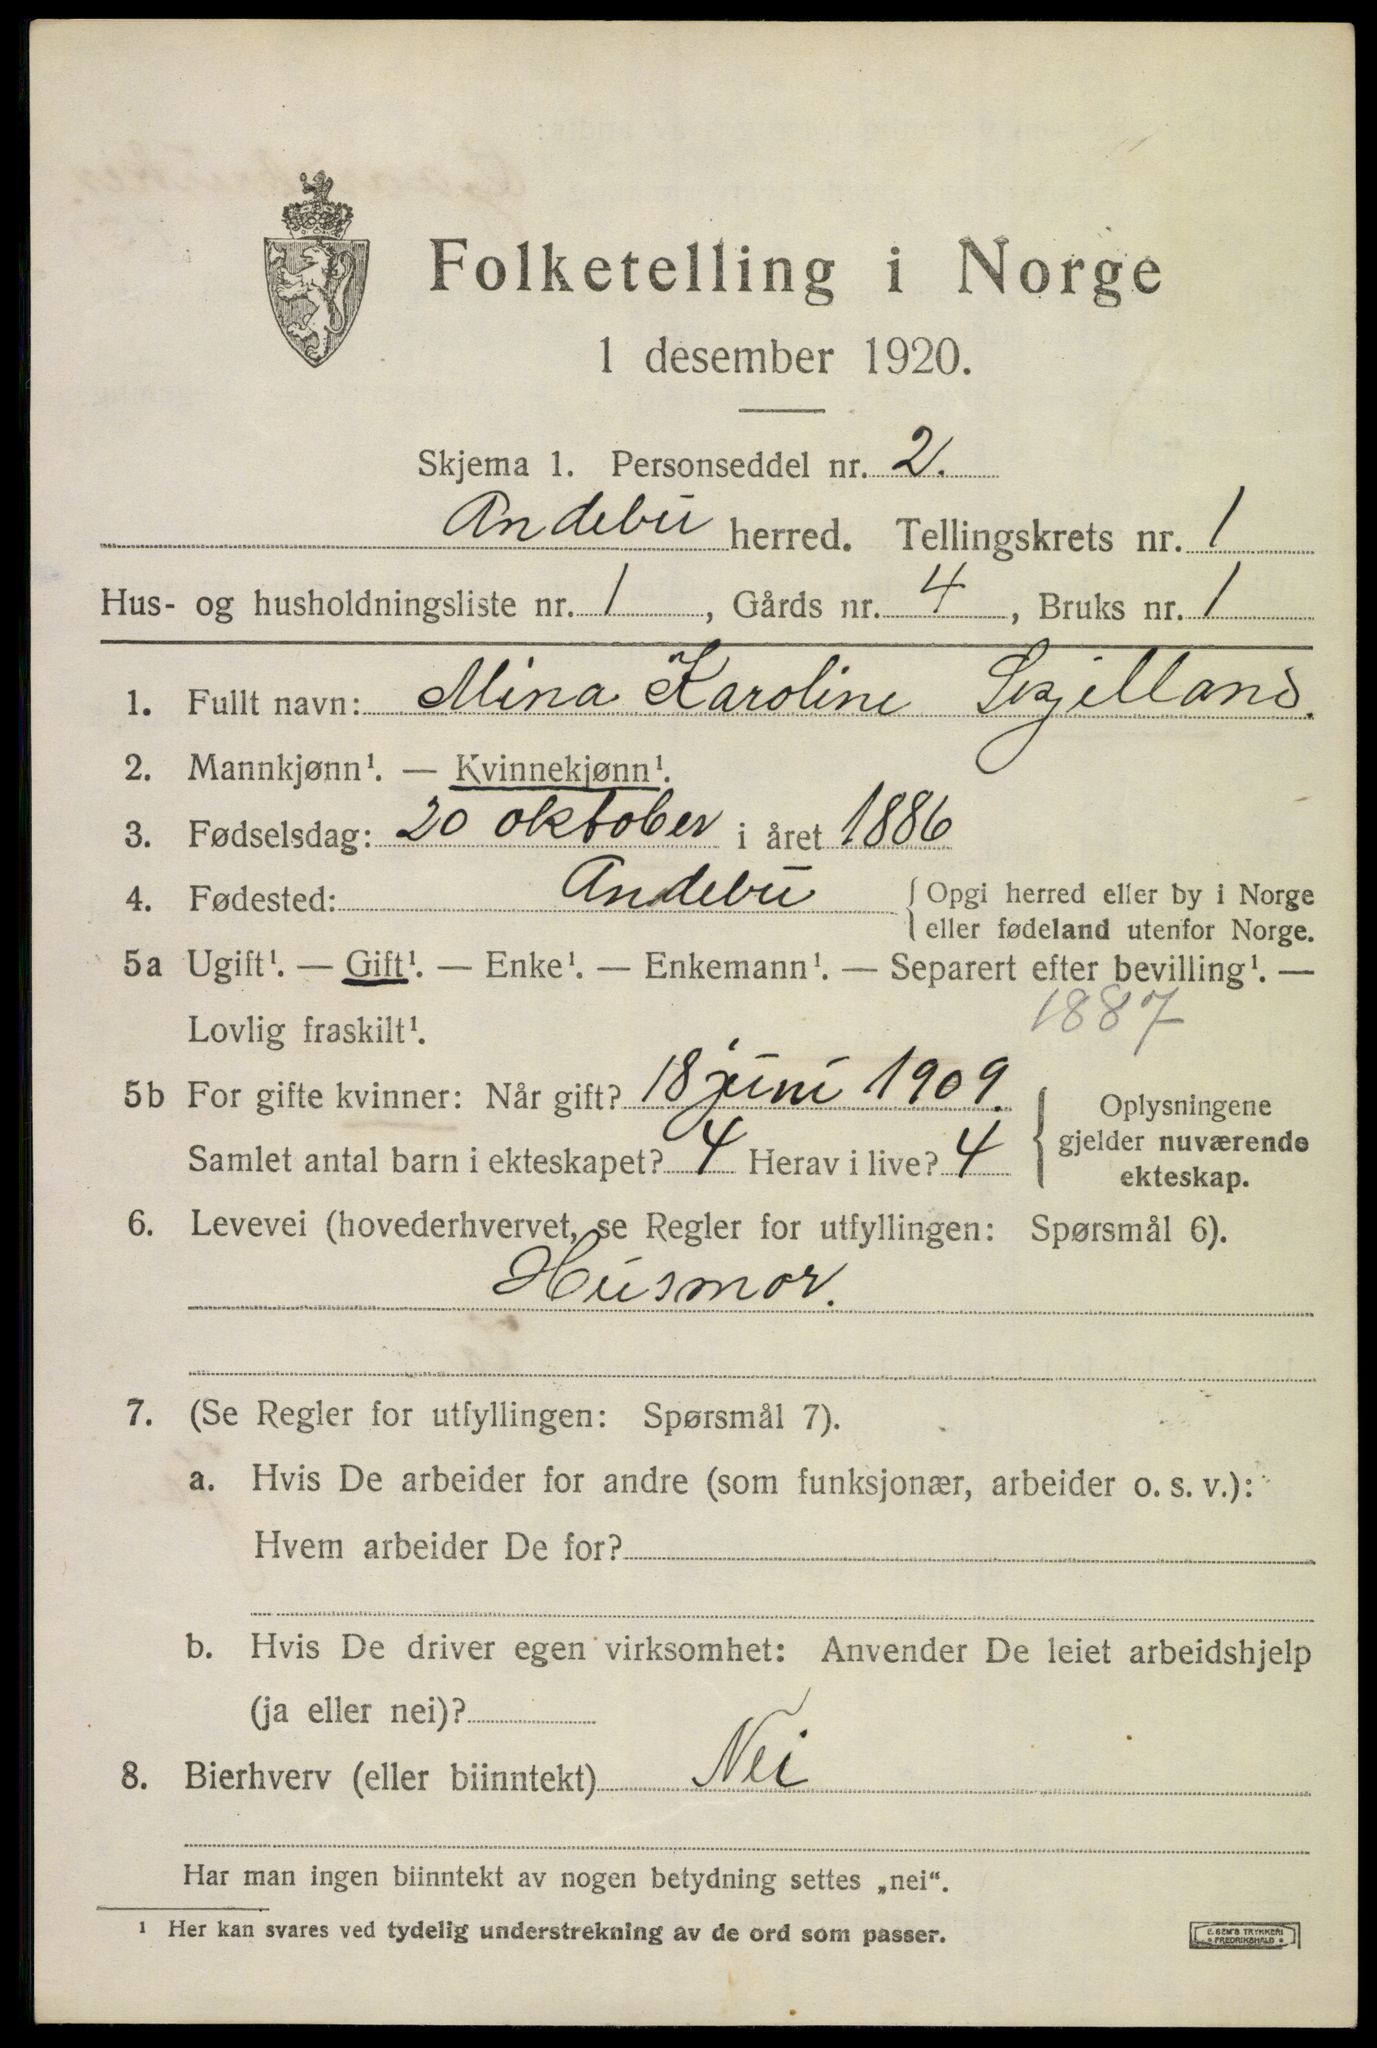 Folketelling i Norge
1 desember 1920.
Skjema 1. Personseddel nr. 2.
Andebu herred. Tellingskrets nr. 1
Hus- og husholdningsliste nr. 1, Gårds nr. 4, Bruks nr. 1
1. Fullt navn: Mina Karoline
2. Mannkjønn¹. — Kvinnekjønn¹.
3. Fødselsdag: 20 oktober i året 1886
4. Fødested: Andebu { Opgi herred eller by i Norge
eller fødeland utenfor Norge.
5a Ugift¹. — Gift¹. — Enke¹. — Enkemann¹. — Separert efter bevilling¹. —
Lovlig fraskilt¹. 1887
5b For gifte kvinner: Når gift? 18 juni 1909.
Samlet antal barn i ekteskapet? 4 Herav i live? 4
{ Oplysningene
gjelder nuværende
ekteskap.
6. Levevei (hovederhvervet, se Regler for utfyllingen: Spørsmål 6).
Husmor.
7. (Se Regler for utfyllingen: Spørsmål 7).
a. Hvis De arbeider for andre (som funksjonær, arbeider o. s. v.):
Hvem arbeider De for?
b. Hvis De driver egen virksomhet: Anvender De leiet arbeidshjelp
(ja eller nei)?
8. Bierhverv (eller biinntekt) Nei
Har man ingen biinntekt av nogen betydning settes „nei“.
¹ Her kan svares ved tydelig understrekning av de ord som passer.
E. SEM'S TRYKKERI
FREDRIKSHALD